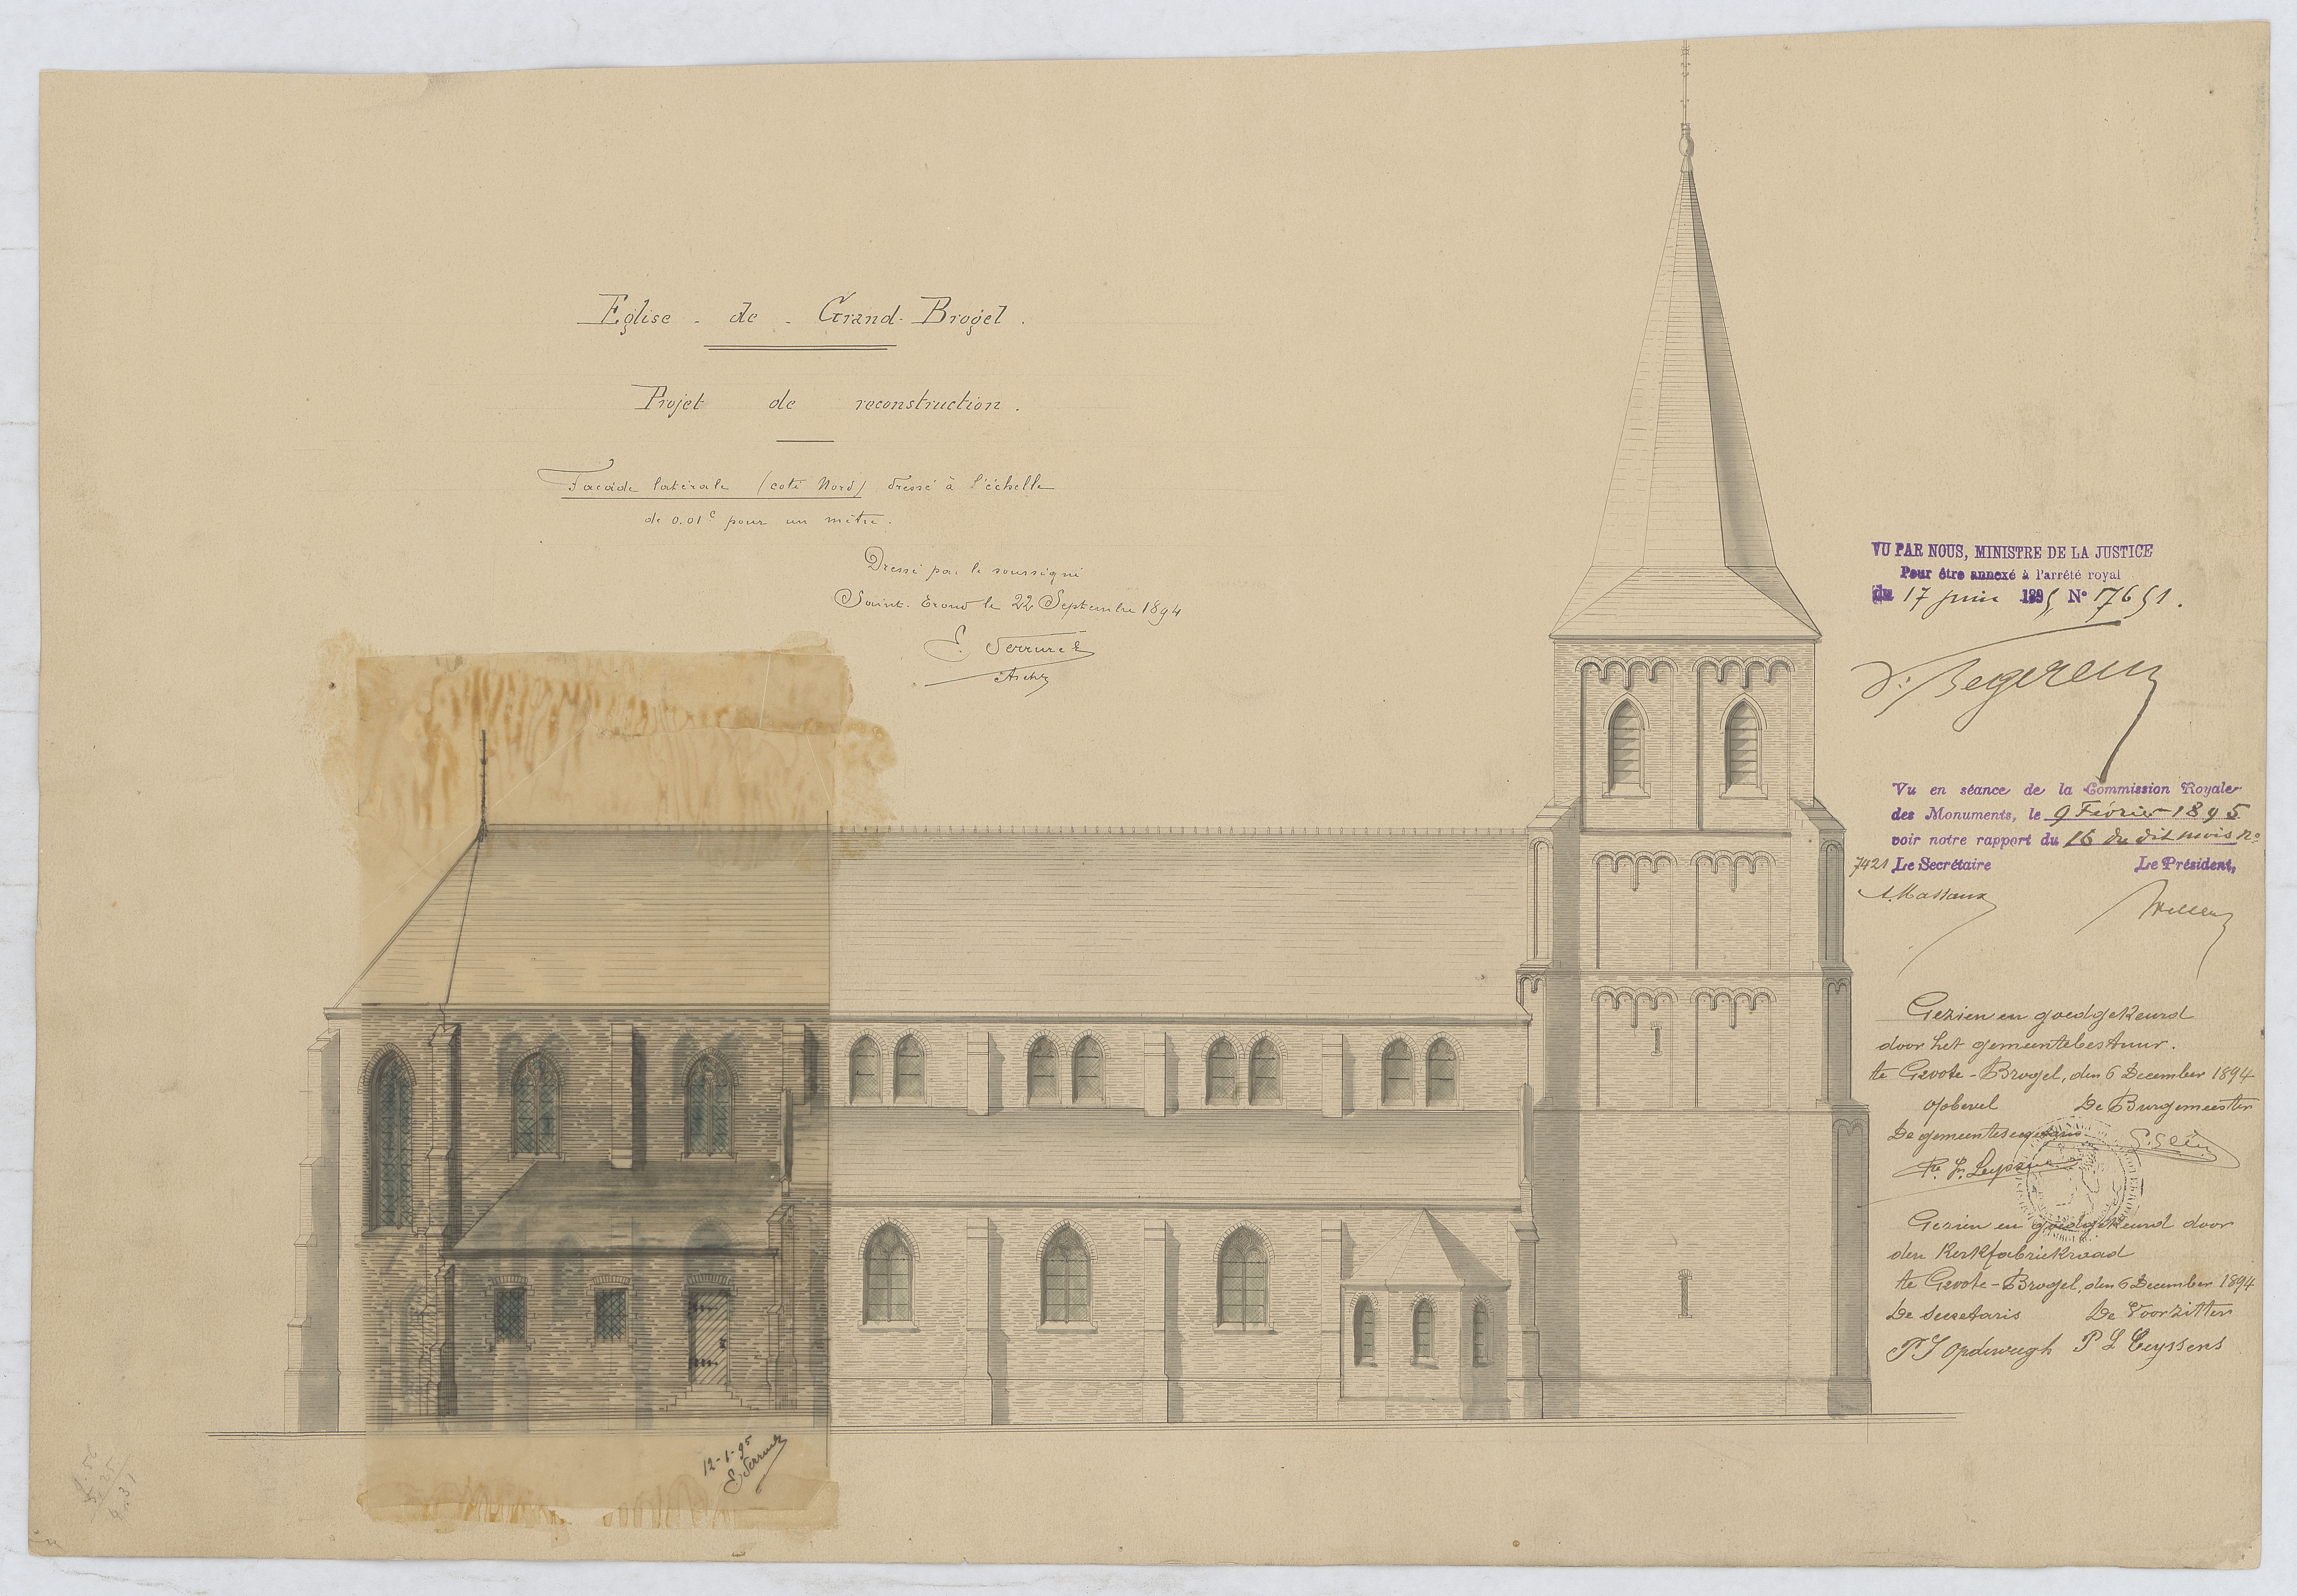 Eglise - de - Grand-Brogel.
Projet de reconstruction.
Facade latérale (coté Nord) dressé à l'échelle
de 0.01c pour un mètre.
Dressé par le soussigné
Saint-Trond le 22 Septembre 1894
E. Serrure
Archte
VU PAR NOUS, MINISTRE DE LA JUSTICE
Pour être annexé à l'arrêté royal
du 17 juin 1895 No 17651.
V. Begerem
Vu en séance de la Commission Royale
des Monuments, le 9 Février 1895
voir notre rapport du 16 du dit mois No
7421 Le Secrétaire Le Président,
A. Massaux
Gezien en goedgekeurd
door het gemeentebestuur.
te Groote-Brogel, den 6 December 1894
op bevel De Burgemeester
De gemeentesecretaris
Gezien en goedgekeurd door
den Kerkfabriekraad
te Groote-Brogel, den 6 December 1894
De Secretaris De Voorzitter
P L Leyssens
12-1-95
E. Serrure